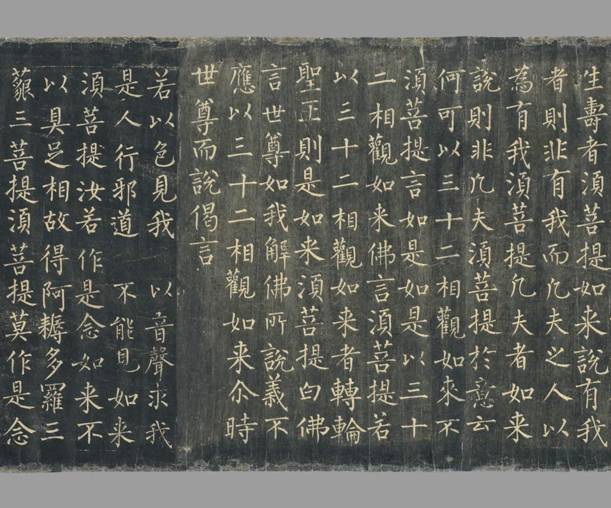 生壽者須菩提如来說有我
者則非有我而凢夫之人以
為有我須菩提凢夫者如来
說則非凢夫須菩提於意云
何可以三十二相觀如来不
須菩提言如是如是以三十
二相觀如来佛言須菩提若
以三十二相觀如来者轉輪
聖王則是如来須菩提白佛
言世尊如我解佛所說義不
應以三十二相觀如来尒時
世尊而說偈言
若以色見我 以音聲求我
是人行邪道 不能見如来
須菩提汝若作是念如来不
以具足相故得阿耨多羅三
藐三菩提須菩提莫作是念